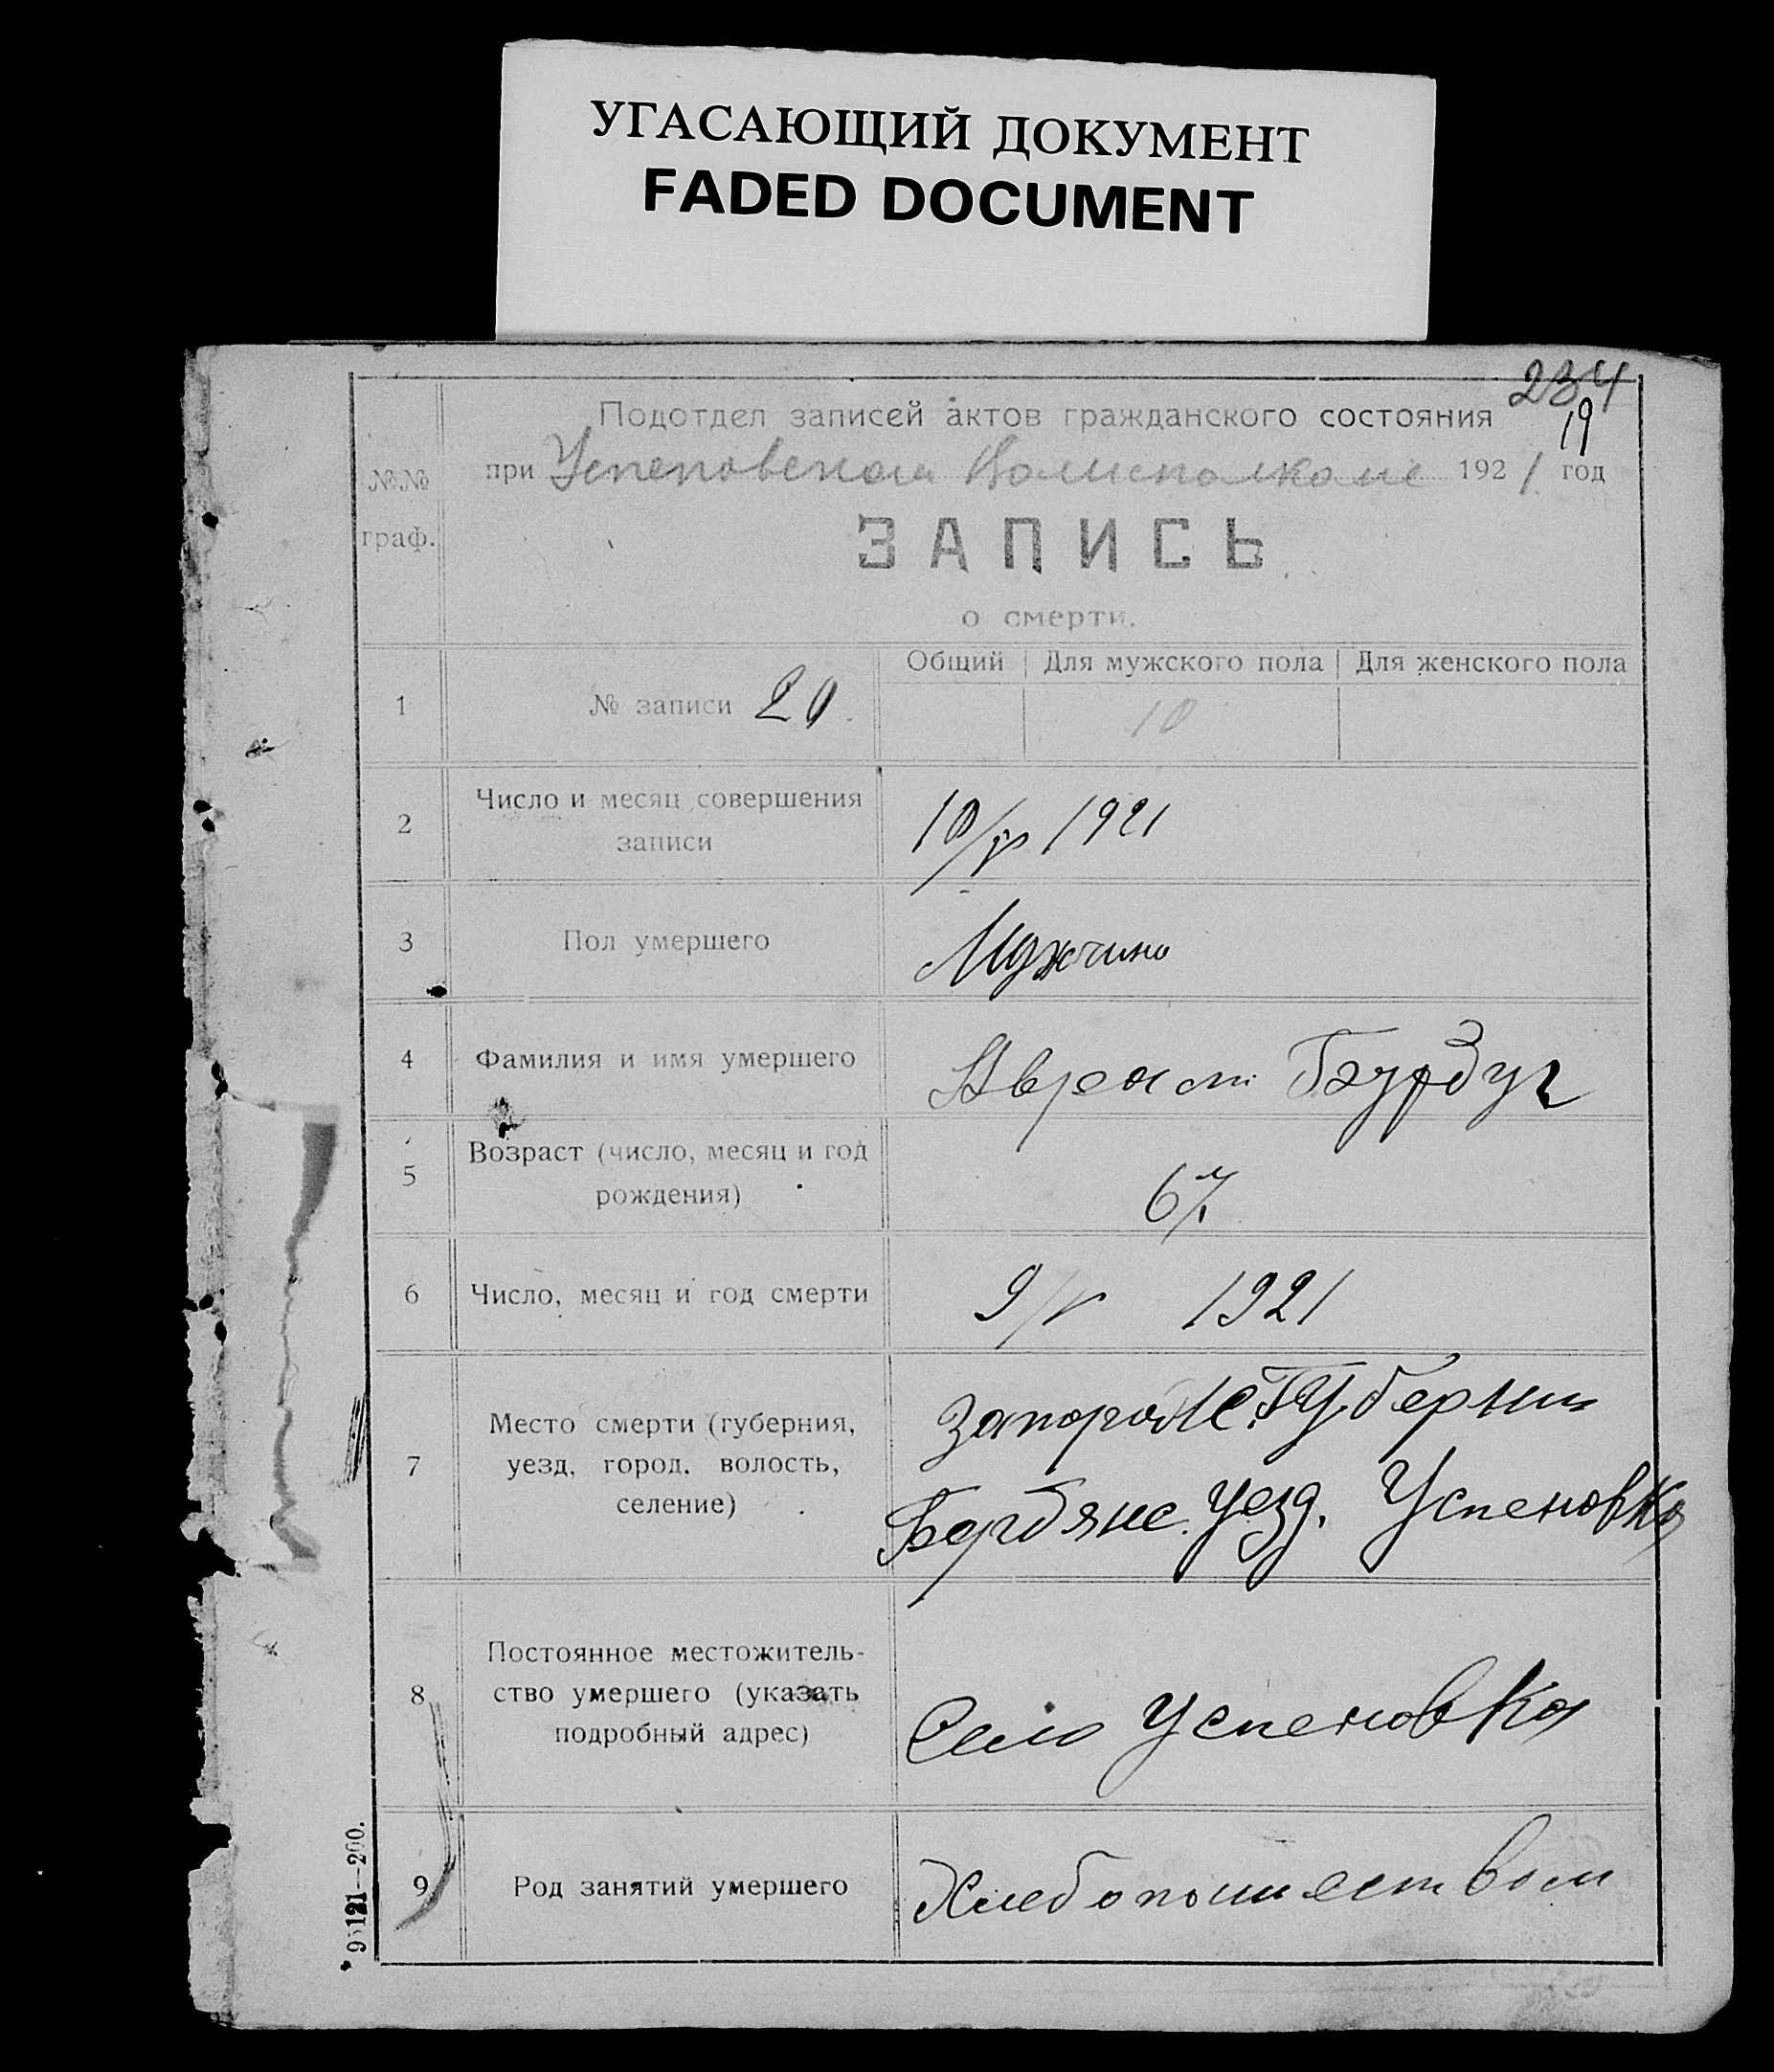 УГАСАЮЩИЙ ДОКУМЕНТ
FADED DOCUMENT
234
19
Подотдел записей актов гражданского состояния
№№ граф.
при Успеновском Волисполкоме 1921 год
ЗАПИСЬ
о смерти.
Общий Для мужского пола Для женского пола
1 № записи 20 10
2 Число и месяц совершения
записи
10/V 1921
3 Пол умершего Мужчина
4 Фамилия и имя умершего
5 Возраст (число, месяц и год
рождения)
6 Число, месяц и год смерти 9/V 1921
7 Место смерти (губерния,
уезд, город, волость,
селение)
Запорож. Губернии
Бердянс. Уезд. Успеновка
8 Постоянное местожитель-
ство умершего (указать
подробный адрес)
Село Успеновка
9 Род занятий умершего Хлебопашеством